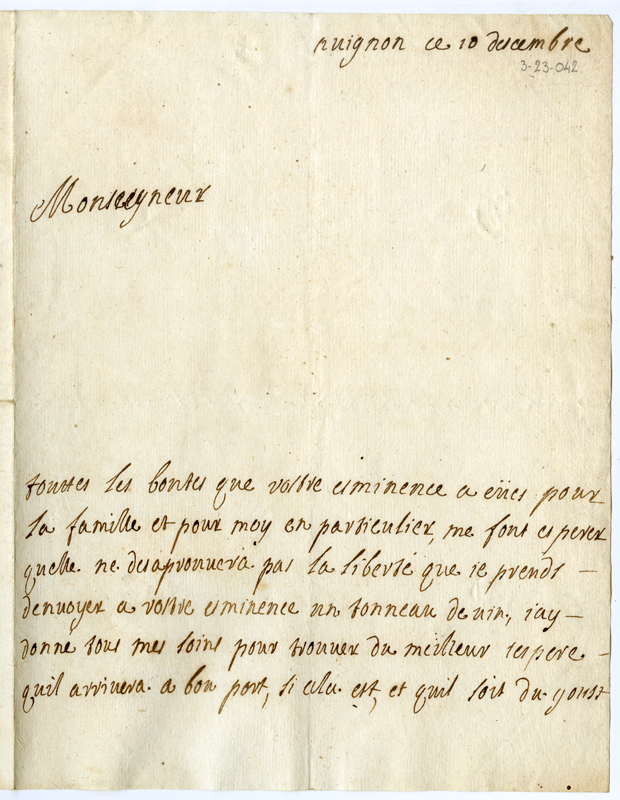 auignon ce 10 descembre
3-23-042
Monseigneur
touttes les bontes que vostre esminence a eües pour
la famille et pour moy en particulier, me font esperer
quelle ne desaprouuera pas la liberté que ie prends —
denuoyer a vostre esminence un tonneau de uin, iay —
donné tous mes soins pour trouuer du meilleur iespere -
quil arriuera a bon port, si cela est, et quil soit du goust